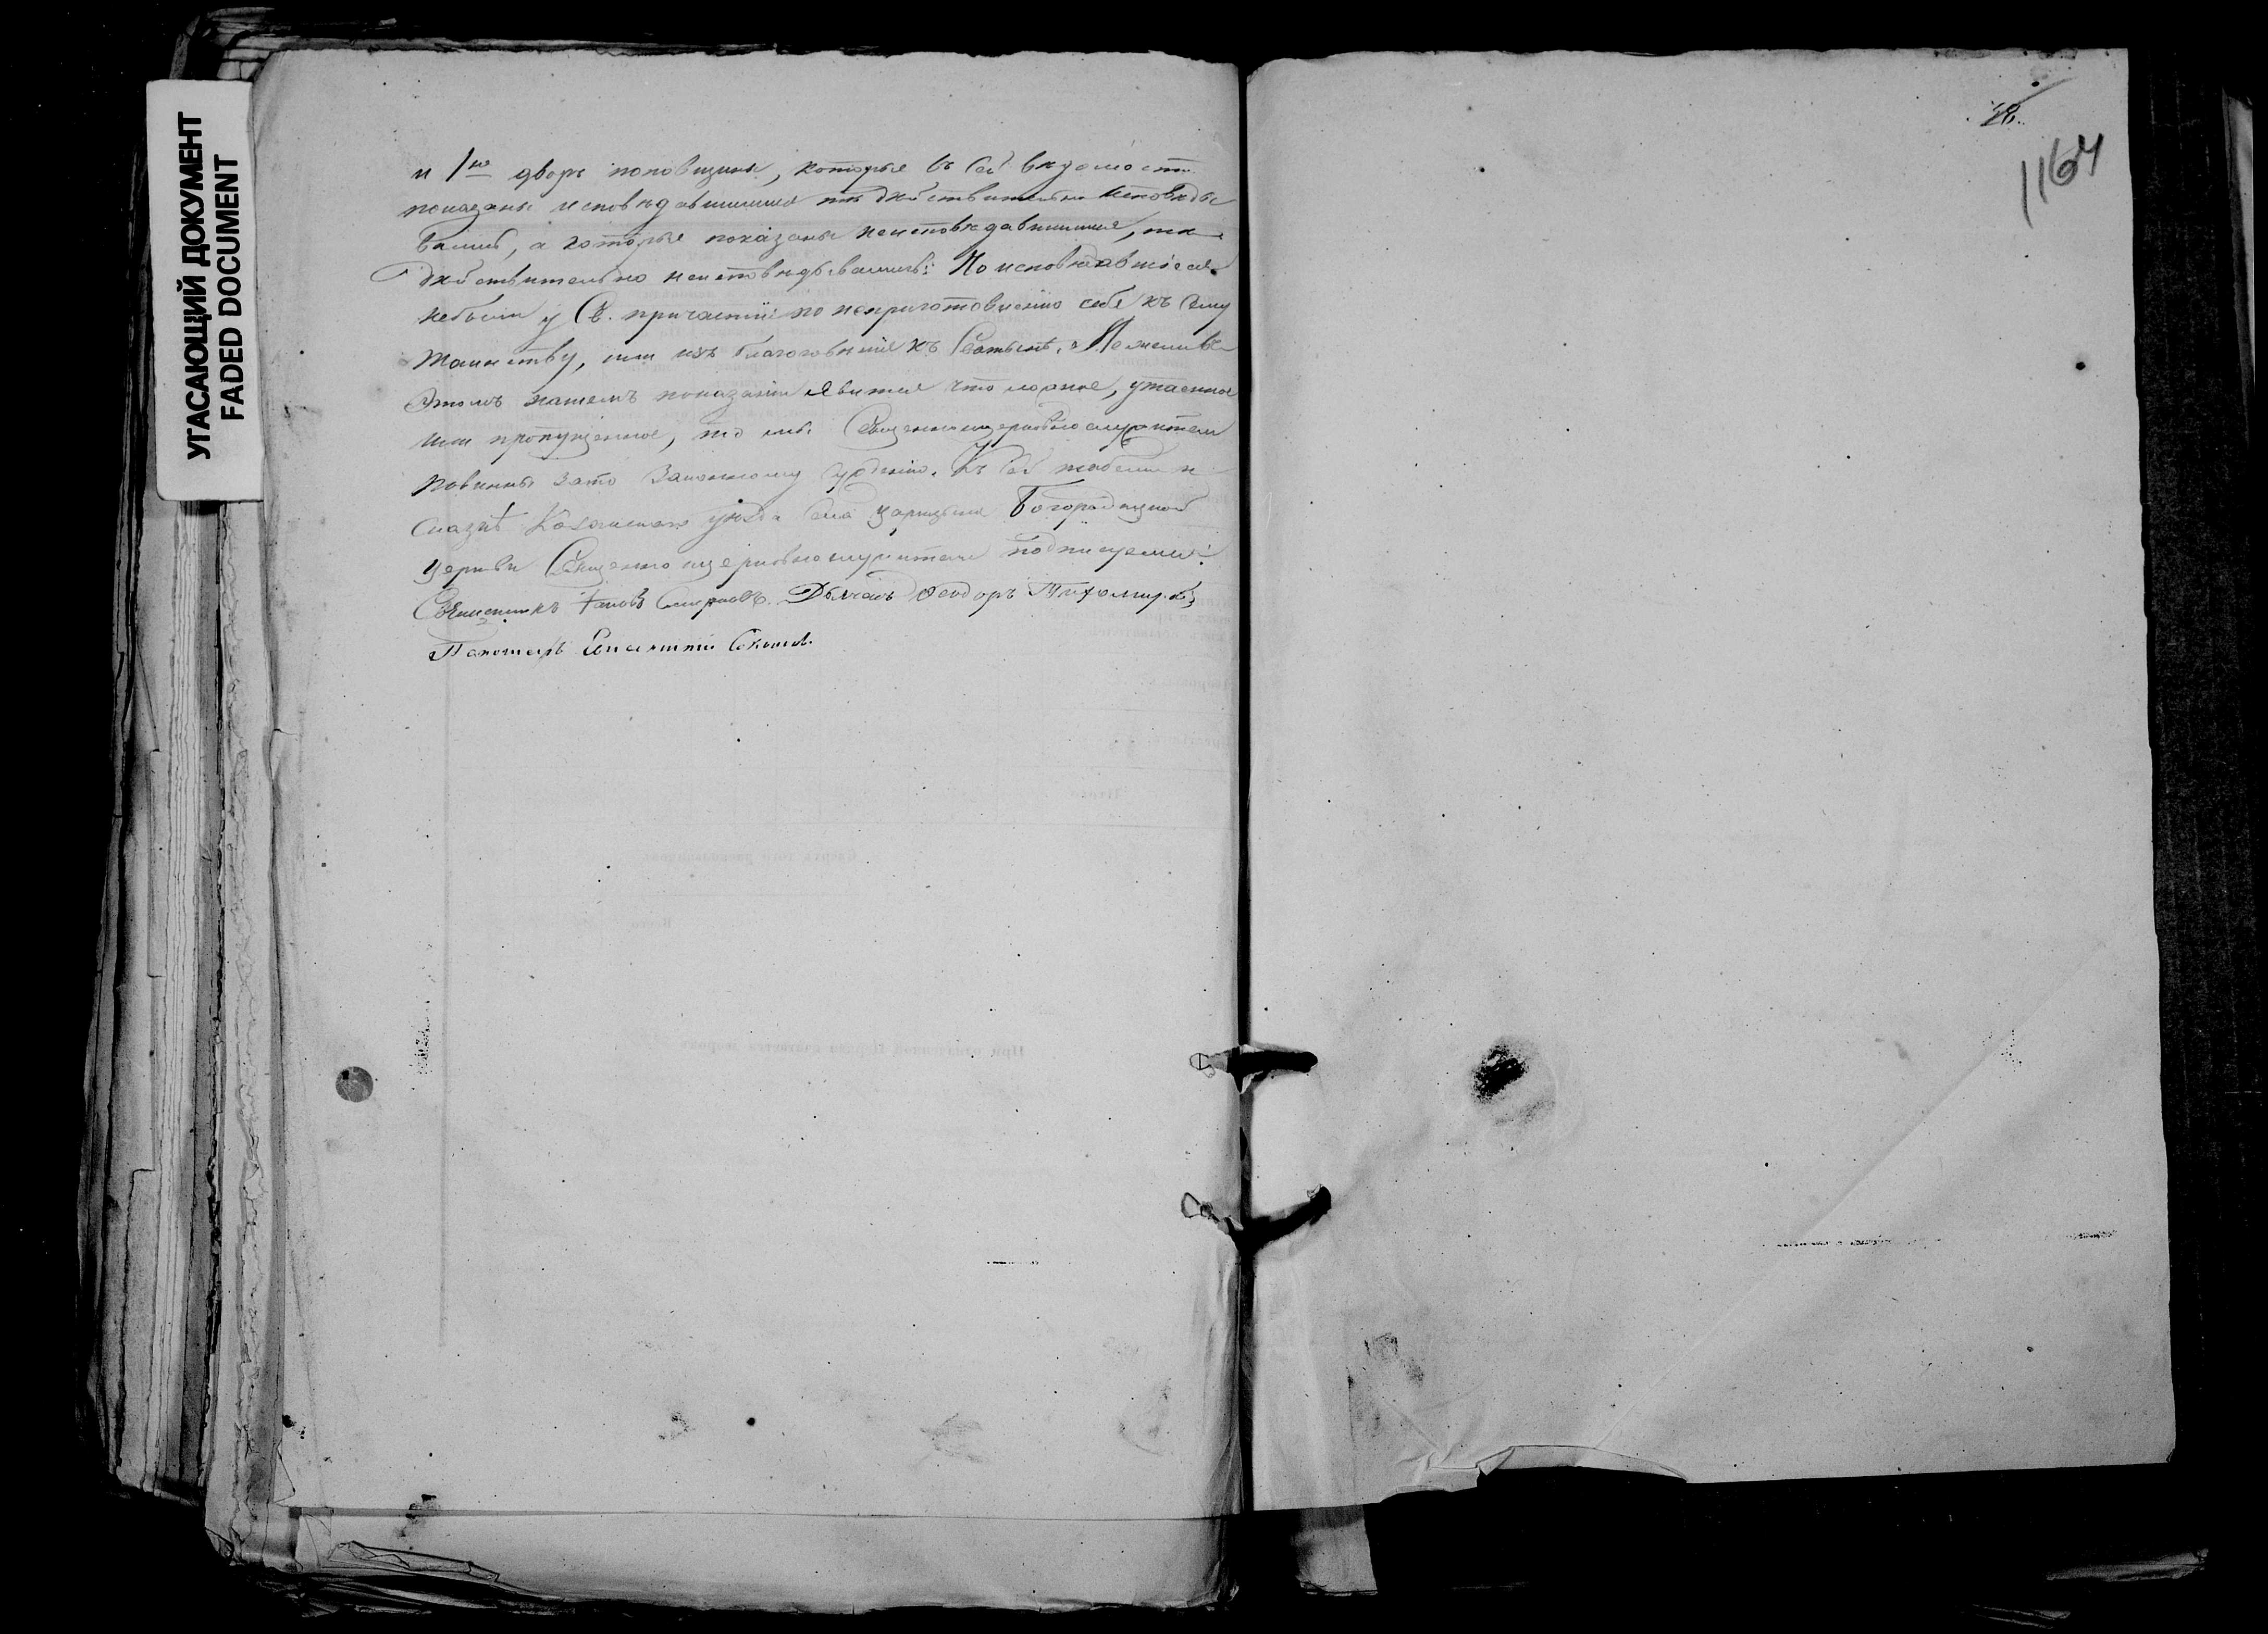 УГАСАЮЩИЙ ДОКУМЕНТ
FADED DOCUMENT
и 1не дворъ поповщины, которые въ сей вѣдомости
показаны исповѣдавшимися тѣ дѣйствительно исповѣды
вались, а которые показаны неисповѣдавшимися, тѣ
дѣйствительно неисповѣдывались: Но исповѣдавшіеся
небыли у Св. причастія по неприготовленію себя къ сему
таинству, или изъ благоговѣнія къ Святынѣ. А если въ
этомъ нашемъ показаніи явится что ложное, утаенное
или пропущенное, то мы Священноцерковнослужители
повинны зато законному суждению. Къ сей
уѣзда села Царицына Богородицкой
церкви Священноцерковнослужители подписуемся:
Священникъ Іаковъ Смирновъ. Дьячекъ Ѳеодоръ Тихомировъ
Пономарь
1164